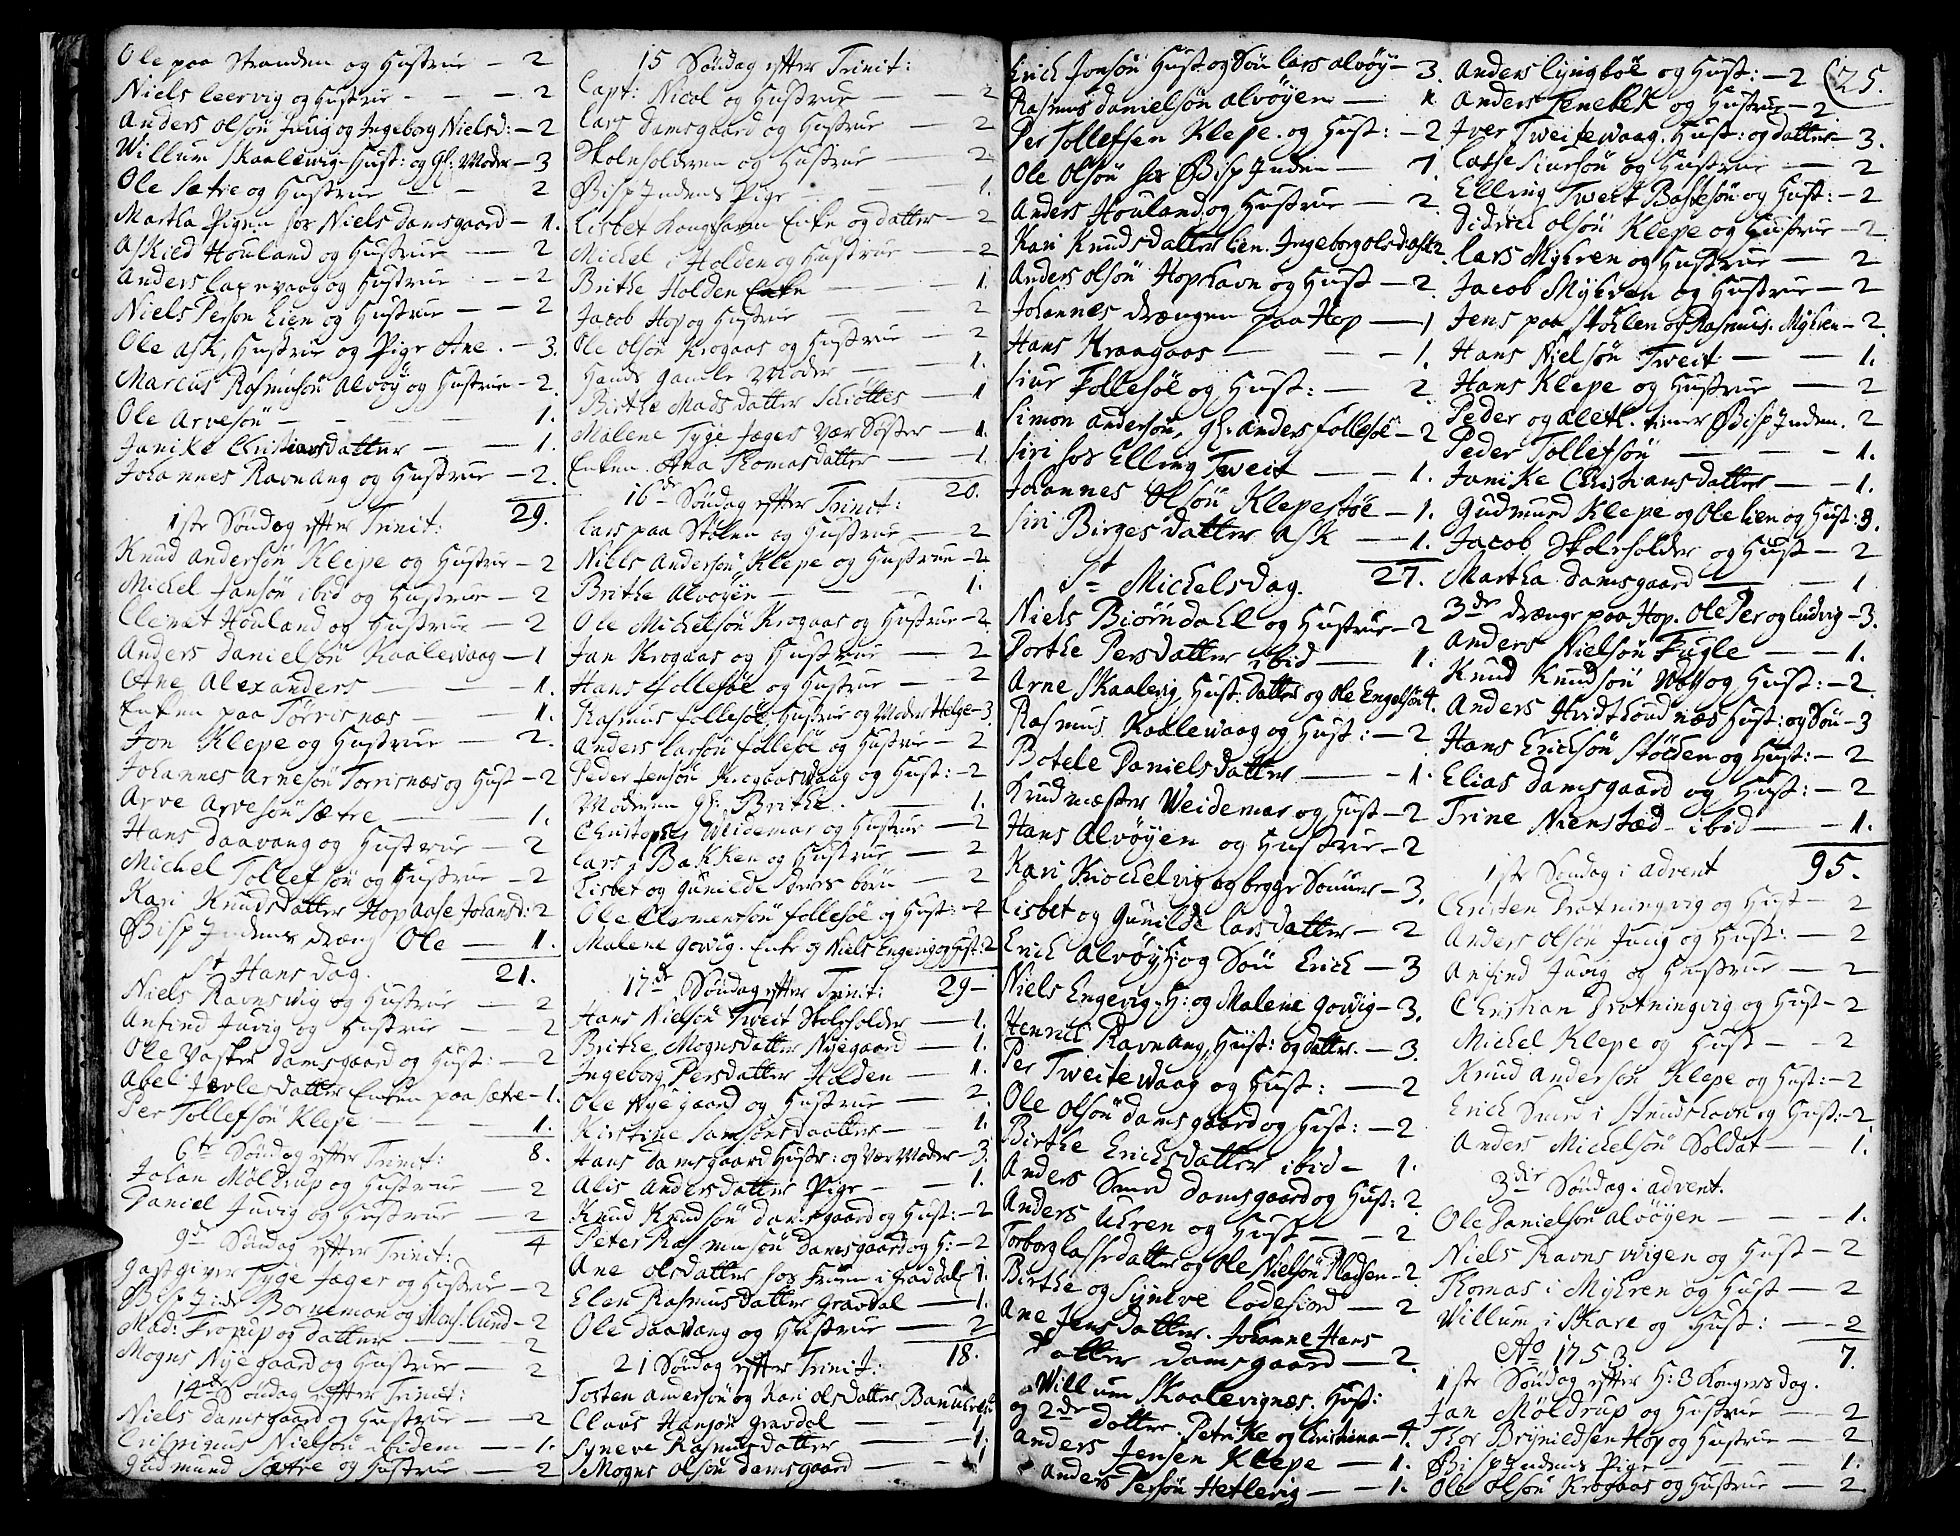 Ole paa Stranden og Hustrue — 2
Niels Leervig og Hustrue - - - 2
Anders Olsön Juvig og Ingeborg Nielsd: - 2
Willum Skaalevig Hust: og Gl: Moder - 3
Ole Sætre og Hustrue — - 2
Martha Pigen hos Niels Damsgaard - 1.
Askied Houland og Hustrue — 2
Anders Laxevaag og Hustrue — 2
Niels Persön Lien og Hustrue — - 2
Ole Ask, Hustrue og Pige Ane. - 3.
Marcus Rasmusön Alvöy og Hustrue - 2.
Ole Arvesön - - - 1.
Janike Christiansdatter — - 1.
Johannes Ravnang og Hustrue — 2.
1ste Söndag efter Trinit: 29.
Knud Andersön Klepe og Hustrue - 2
Michel Jansön ibid og Hustrue - 2
Clemet Houland og Hustrue — 2
Anders Danielsön Kaalevaag — 1
Ane Alexanders — - 1.
Enken paa Törrisnæs — - 1.
Jon Klepe og Hustrue — 2.
Johannes Arnesön Torrisnæs og Hust - 2
Arve Arvesön Sætre — - 1.
Hans Daavang og Hustrue — 2
Michel Tollefsön og Hustrue - 2
Kari Knudsdatter Hop Aase Johansd: 2
Bisp Indens dreng Ole — 1.
St Hans dag. 21.
Niels Ravnsvig og Hustrue — 2
Anfind Juvig og Hustrue — 2
Ole Vasker Damsgaard og Hust: - 2
Abel datter Enken paa Sætre - 1.
Per Tollefsön Klepe — - 1.
6te Söndag efter Trinit: 8.
Johan Möldrup og Hustrue — 2
Daniel Juvig og Hustrue — 2
9de Söndag efter Trinit: 4
Gastgiver Tyge Jæger og Hustrue - 2
Borneman og Mons. Lund - 2
Mad: Frorup og datter — 2
Mogns Nyegaard og Hustrue — 2
14de Söndag efter Trinit:
Niels Damsgaard og Hustrue — 2
Crispinus Nielsön ibidem — 1.
Gudmund Sætre og Hustrue — 2
15 Söndag efter Trinit:
Capt: Nicol og Hustrue — 2
Lars Damsgaard og Hustrue — 2
Skoleholderen og Hustrue — 2
Bisp Indens Pige - 1.
Lisbet Enke og datter — 2
Michel i Holden og Hustrue — 2
Brithe Holden Enke — - 1.
Jacob Hop og Hustrue — 2
Ole Olsön Krogaas og Hustrue — 2
Hands gamle Moder — - 1.
Birthe Madsdatter Schöttes — 1
Malene Tyge Jægers Vær Söster — 1.
Enken Ana Thomasdatter — 1.
16de Söndag efter Trinit: 20.
Lars paa Stölen og Hustrue — 2
Niels Andersön Klepe og Hustrue - 2
Brithe Alvöyen - - 1.
Ole Michelsön Krogaas og Hustrue - 2.
Jan Krogaas og Hustrue — 2
Hans Follesöe og Hustrue — 2
Rasmus Follesöe, Hustrue og Moder Helge - 3.
Anders Larsön Follesöe og Hustrue - 2
Peder Jensön Krogaasvaag og Hust: - 2
Moderen Gl: Brithe. — 1.
Christopher Weidemar og Hustrue — 2
Lars i Bakken og Hustrue — 2
Lisbet og Gunilde deres börn — 2
Ole Clementsön Follesöe og Hust: - 2
Malene Govig. Enke og Niels Engevig og Hust: 2
17de Söndag efter Trinit: 29-
Hans Nielsön Tweit Skoleholder — 1.
Brithe Mognsdatter Nyegaard — 1.
Ingeborg Persdatter Holden — 1.
Ole Nyegaard og Hustrue — 2.
Kirstine Samsonsdaatter — - 1.
Hans Damsgaard Hustr: og Vær Moder - 3.
Alis Andersdatter Pige — 1.
Knud Knudsön Damsgaard og Hust: - 2
Peter Rasmusön Damsgaard og H: - 2
Ane Olsdatter hos Fruen i Gravdal - 1.
Elen Rasmusdatter Gravdal — 1.
Ole Daavang og Hustrue — 2
21 Söndag efter Trinit: 18.
Tosten Andersön og Kari Olsdatter
Claus Hansön Gravdal — - 1.
Syneve Rasmusdatter — - 1.
Mogns Olsön Damsgaard — - 1
Erich Jonsön Hust og Sön Lars Alvöy - 3.
Rasmus Danielsön Alvöyen —
Per Tollefsen Klepe og Hust: - 2
Ole Olsön hos Bisp Inden — 1.
Anders Houland og Hustrue — 2.
Kari Knudsdatter Lien. Ingeborg Olsd. Ask 2.
Anders Olsön Hopshavn og Hust - 2.
Johannes drængen paa Hop — 1
Hans Kraagaas — - 1.
Siur Follesöe og Hust: — 2.
Simon Andersön, Gl: Anders Follesöe - 2
Siri hos Elling Tweit — - 1.
Johannes Olsön Klepestöe — 1.
Siri Birgesdatter Ask — 1.
St Michelsdag. 27.
Niels Biörndahl og Hustrue - 2
Dorthe Persdatter ibid — 1.
Arne Skaalevig, Hust: Datter og Ole Engelsön 4.
Rasmus Kaalewaag og Hust: - 2
Botele Danielsdatter — - 1.
Krudmæster Weidemar og Hust - 2
Hans Alvöyen og Hustrue - 2
Kari Kiockelvig og begge Sönner - 3.
Lisbet og Gunilde Larsdatter — 2
Erich Alvöy, H: og Sön Erich — 3
Niels Engevig, H: og Malene Govig - 3.
Henrich Ravnang, Hust: og datter. - 3.
Per Tweitewaag og Hust: — 2
Ole Olsön Damsgaard og Hust: - 2
Birthe Erichsdatter ibid - 1.
Anders Smed Damsgaard og Hust: 2.
Anders Uhren og Hust — - 2
Torborg Lassedatter og Ole Nielsön Pladsen - 2.
Birthe og Syneve Lodefiord — 2
Ane Jensdatter. Johanne Hans
datter Damsgaard — 2.
Willum Skaalevignæs. Hust:
og 2de Datter Petrike og Christina - 4.
Anders Jensen Klepe — 1.
Anders Persön Hetlevig — 1.
Anders Lyngböe og Hust: - 2 (25.
Anders Tenebek og Hustrue - 2
Iver Tweitewaag. Hust: og datter - 3.
Lasse Siursön og Hustrue — 2
Elling Tweit Bastesön og Hust: - 2
Didrich Olsön Klepe og Hustrue - 2.
Lars Myhren og Hustrue — 2
Jacob Myhren og Hustrue — 2
Jens paa Stöhlen og Rasmus Myhren - 2.
Hans Nielsön Tweit — - 1.
Hans Klepe og Hustrue — 2
Peder og Aleth. tiener Bisp Inden. 2
Peder Tollefsön — - 1.
Janike Christiansdatter — - 1.
Gudmund Klepe og Ole Lien og Hust: 3.
Jacob Skoleholder og Hust — 2
Martha Damsgaard — - 1
3de drænge paa Hop. Ole Per og Ludvig - 3.
Anders Nielsön Fugle — - 1.
Knud Knudsön og Hust: - 2.
Anders Hust: og Sön - 3
Hans Erichsön Stöelen og Hust: - 2
Elias Damsgaard og Hust: - 2
Trine Nienstæd - ibid — - 1.
1ste Söndag i Advent 95.
Christen Drotningvig og Hust - 2
Anders Olsön Juvig og Hust: — 2
Anfind Juvig og Hustrue — 2
Christian Drotningvig og Hust - 2
Michel Klepe og Hust — - 2
Knud Andersen Klepe og Hust: - 2
Erich Smed i og Hust: - 2
Anders Michelsön Soldat — - 1.
3die Söndag i Advent.
Ole Danielsön Alvöyen — - 1.
Niels Ravnsvigen og Hust — 2
Thomas i Myhren og Hust — 2
Willum i Skare og Hust: — 2
Ao 1753. 7.
1ste Söndag efter H: 3 Kongers dag.
Jan Möldrup og Hustrue — 2
Thor Brynildsen Hop og Hustrue — 2
Bisp Indens Pige — - 1.
Ole Olsön Krogaas og Hustrue — 2.